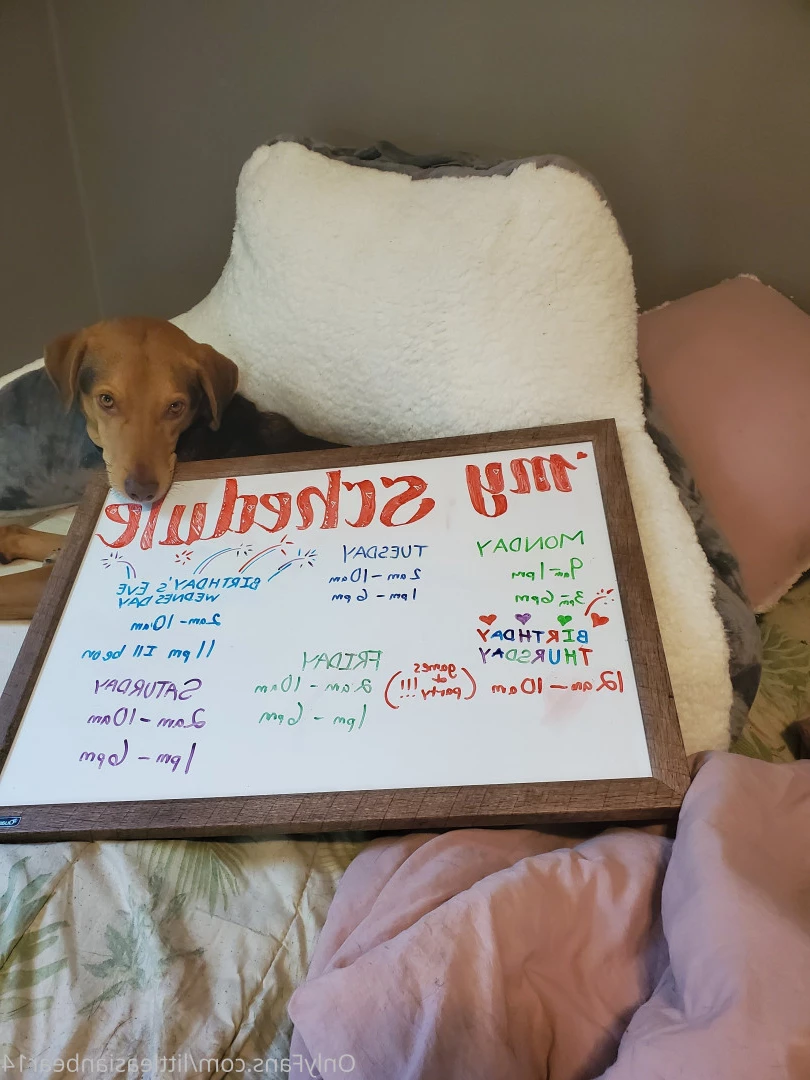 my Schedule
MONDAY
9am-1pm
3pm-6pm
TUESDAY
2am-10am
1pm-6pm
BIRTHDAY'S EVE
WEDNESDAY
2am-10am
11pm I'll be on
BIRTHDAY
THURSDAY
12am-10am (games at party!!!)
FRIDAY
2am-10am
1pm-6pm
SATURDAY
2am-10am
1pm-6pm
OnlyFans.com/littleasianbear14